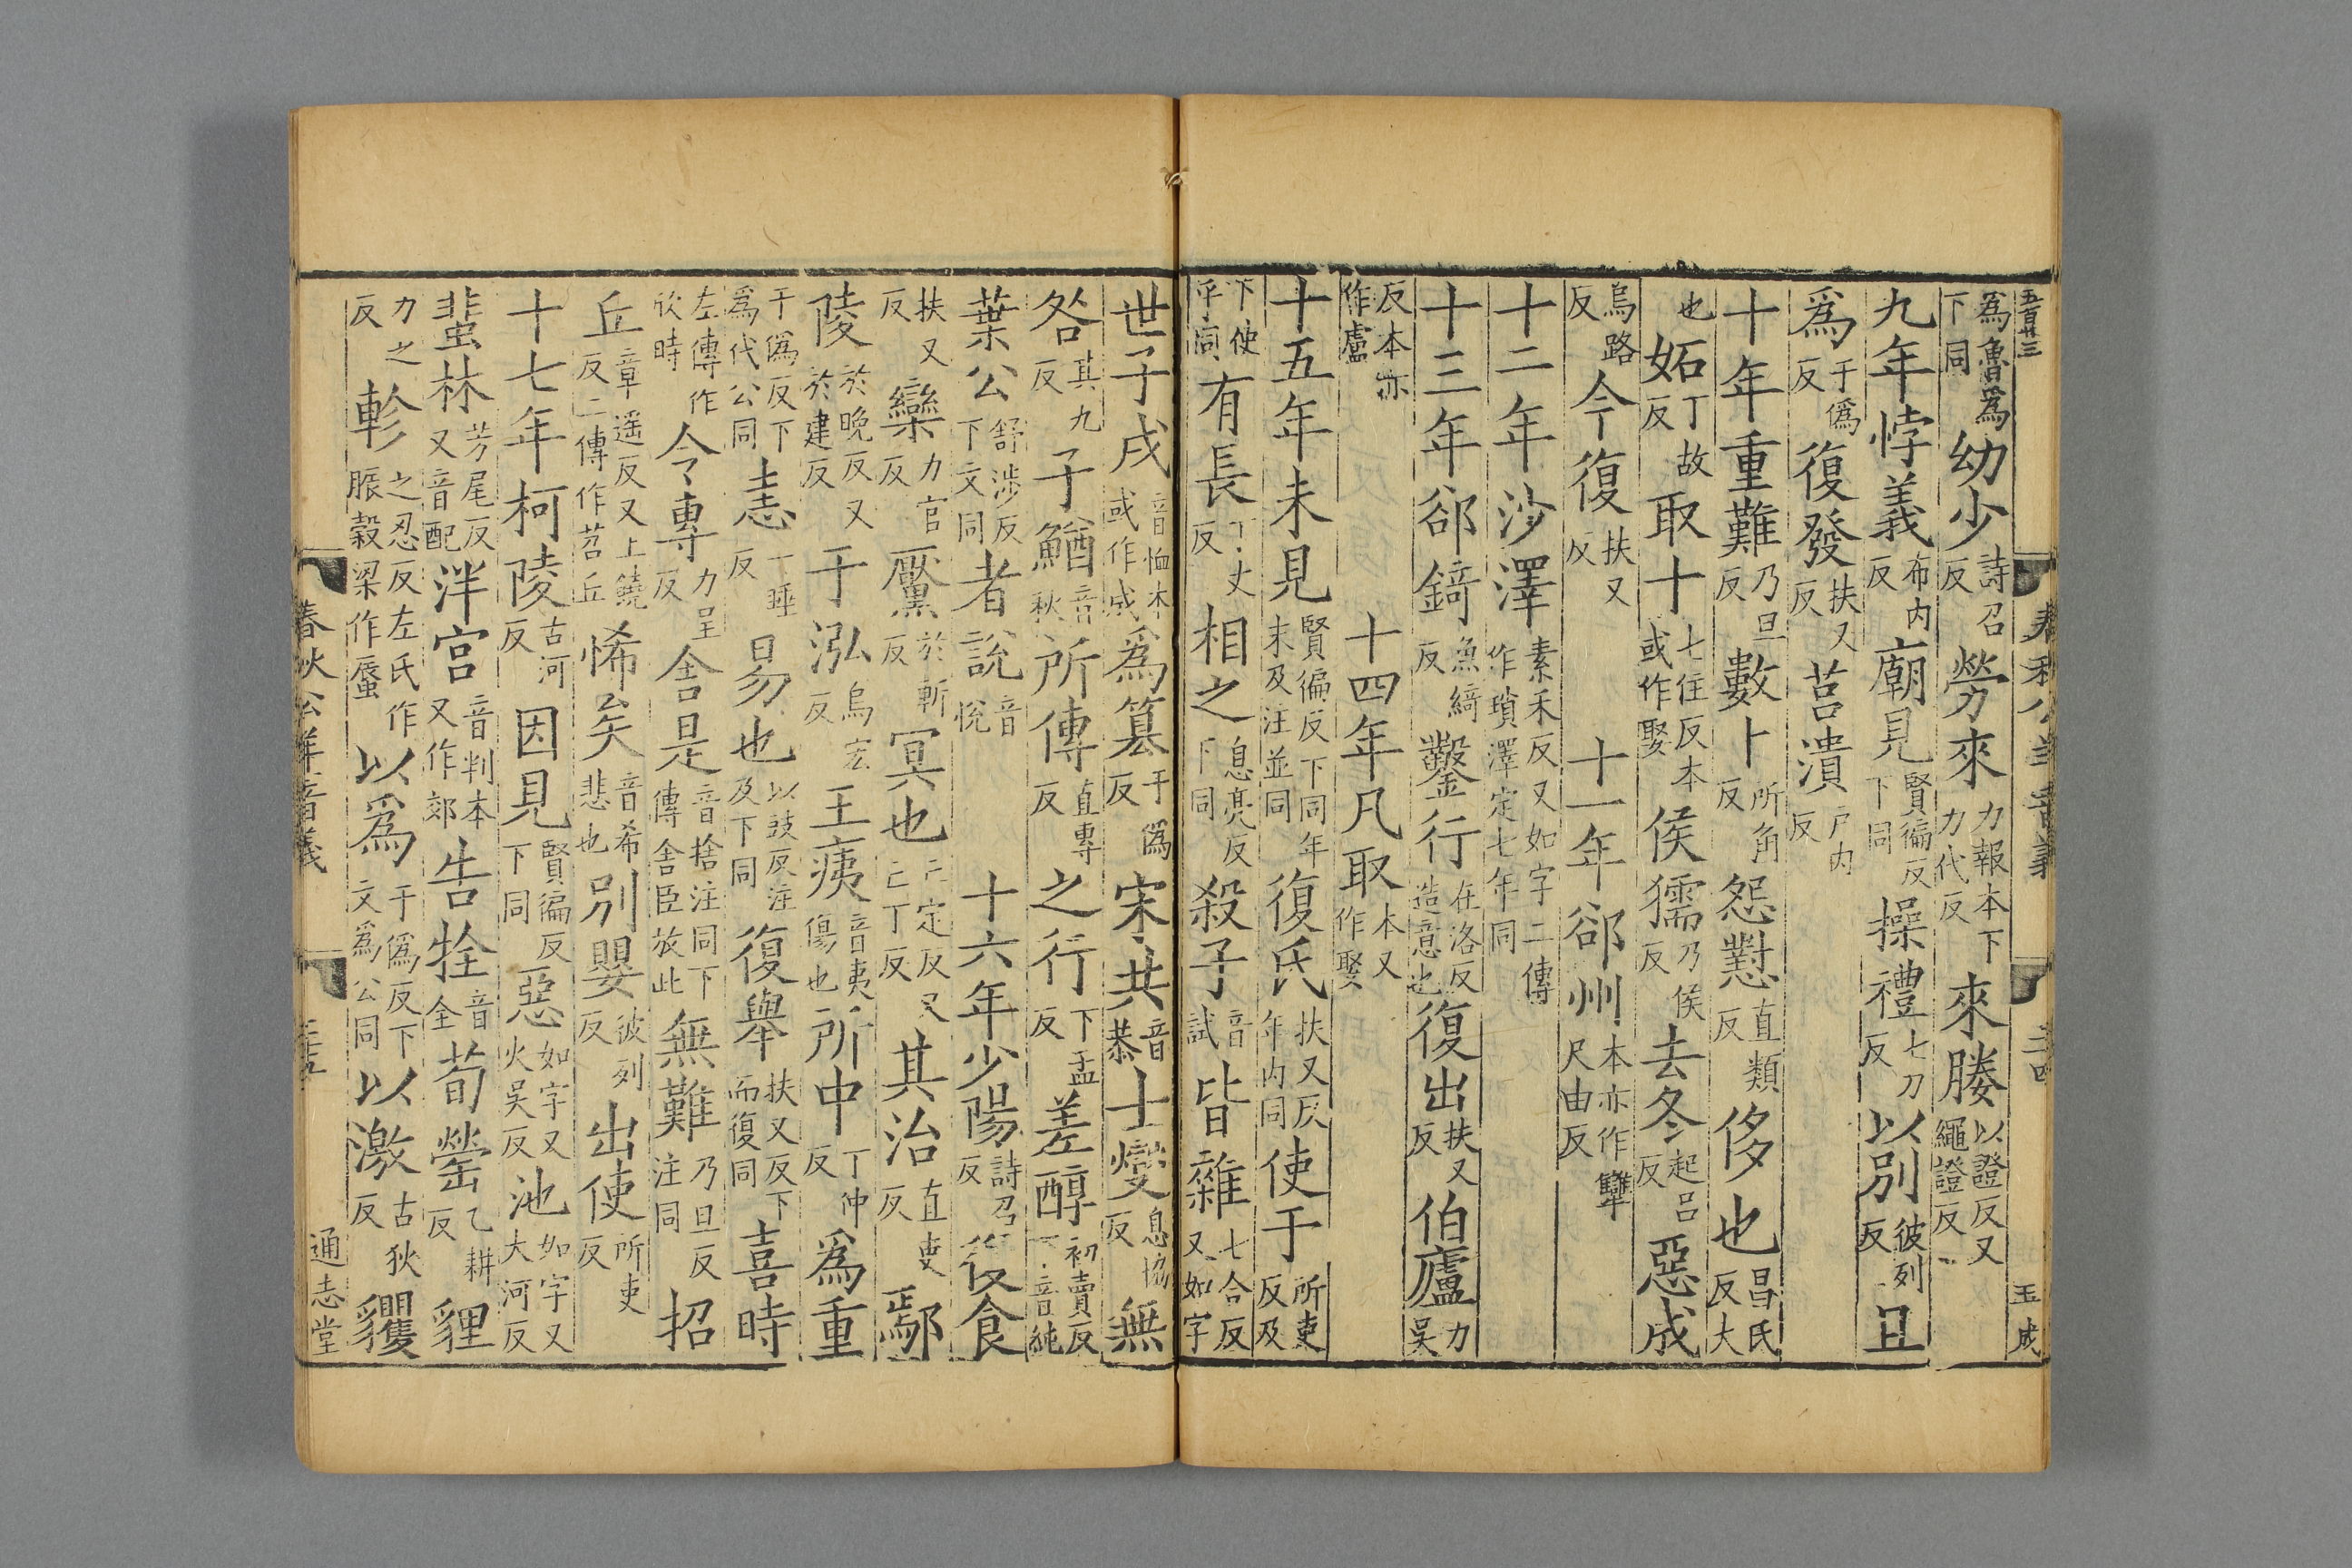 為魯為下同幼少詩召反勞來力報本下力代反來媵以證反又繩證反
九年悖義布内反廟見賢徧反下同操禮七刀反以别彼列反且
為于偽反復發扶又反莒潰户内反
十年重難乃旦反數卜所角反怨懟直類反侈也昌氏反大
也妬丁故反取十七住反本或作娶侯獳乃侯反去冬起吕反惡成
烏路反今復扶又反 十一年郤州本亦作犫尺由反
十二年沙澤素禾反又如字二傳作瑣澤定七年同
十三年郤錡魚綺反鑿行在洛反造意也復出扶又反伯廬力吴
反本亦作盧 十四年凡取本又作娶
十五年未見賢徧反下同年末及注並同復氏扶又反年内同使于所吏反及
下使乎同有長丁丈反相之息亮反下同殺子音試皆雜七合反又如字
世子戌音恤本或作成為篡于偽反宋共音恭士燮息協反無
咎其九反子鰌音秋所傳直專反之行下孟反差醇初賣反下音純
葉公舒涉反下文同者說音悦 十六年少陽詩召反復食
扶又反欒力官反黶於斬反冥也亡定反又亡丁反其治直吏反鄢
陵於晚反又於建反于泓烏宏反王痍音夷傷也所中丁仲反為重
于偽反下為代公同恚一睡反易也以豉反注及下同復舉扶又反下而復同喜時
左傳作欣時令專力呈反舍是音捨注同下傳舍臣放此無難乃旦反注同招
丘章遥反又上饒反二傳作苕丘悕矣音希悲也别嬰彼列反出使所吏反
十七年柯陵古河反因見賢徧反下同惡如字又火吴反池如字又大河反
蜚林芳尾反又音配泮宫音判本又作郊告牲音全荀罃乙耕反貍
力之反軫之忍反左氏作脤穀梁作蜃以為于偽反下文為公同以激古狄反玃
春秋公羊音義
通志堂